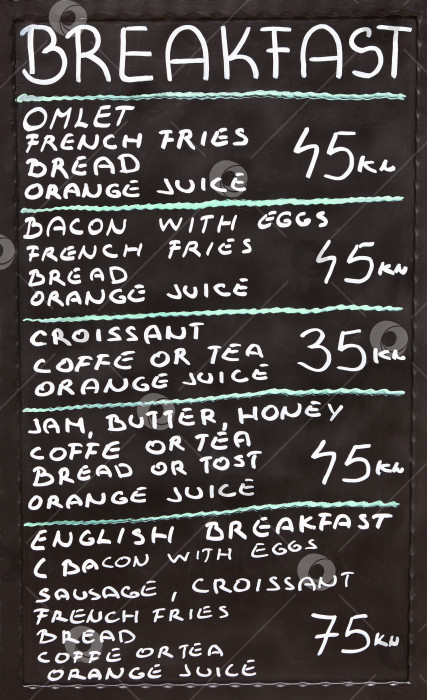 BREAKFAST
OMLET
FRENCH FRIES
BREAD
45 KN
ORANGE JUICE
BACON WITH EGGS
FRENCH FRIES
BREAD
45 KN
ORANGE JUICE
CROISSANT
COFFE OR TEA
35 KN
ORANGE JUICE
JAM, BUTTER, HONEY
COFFE OR TEA
BREAD OR TOST
45 KN
ORANGE JUICE
ENGLISH BREAKFAST
( BACON WITH EGGS
SAUSAGE, CROISSANT
FRENCH FRIES
BREAD
75 KN
COFFE OR TEA
ORANGE JUICE